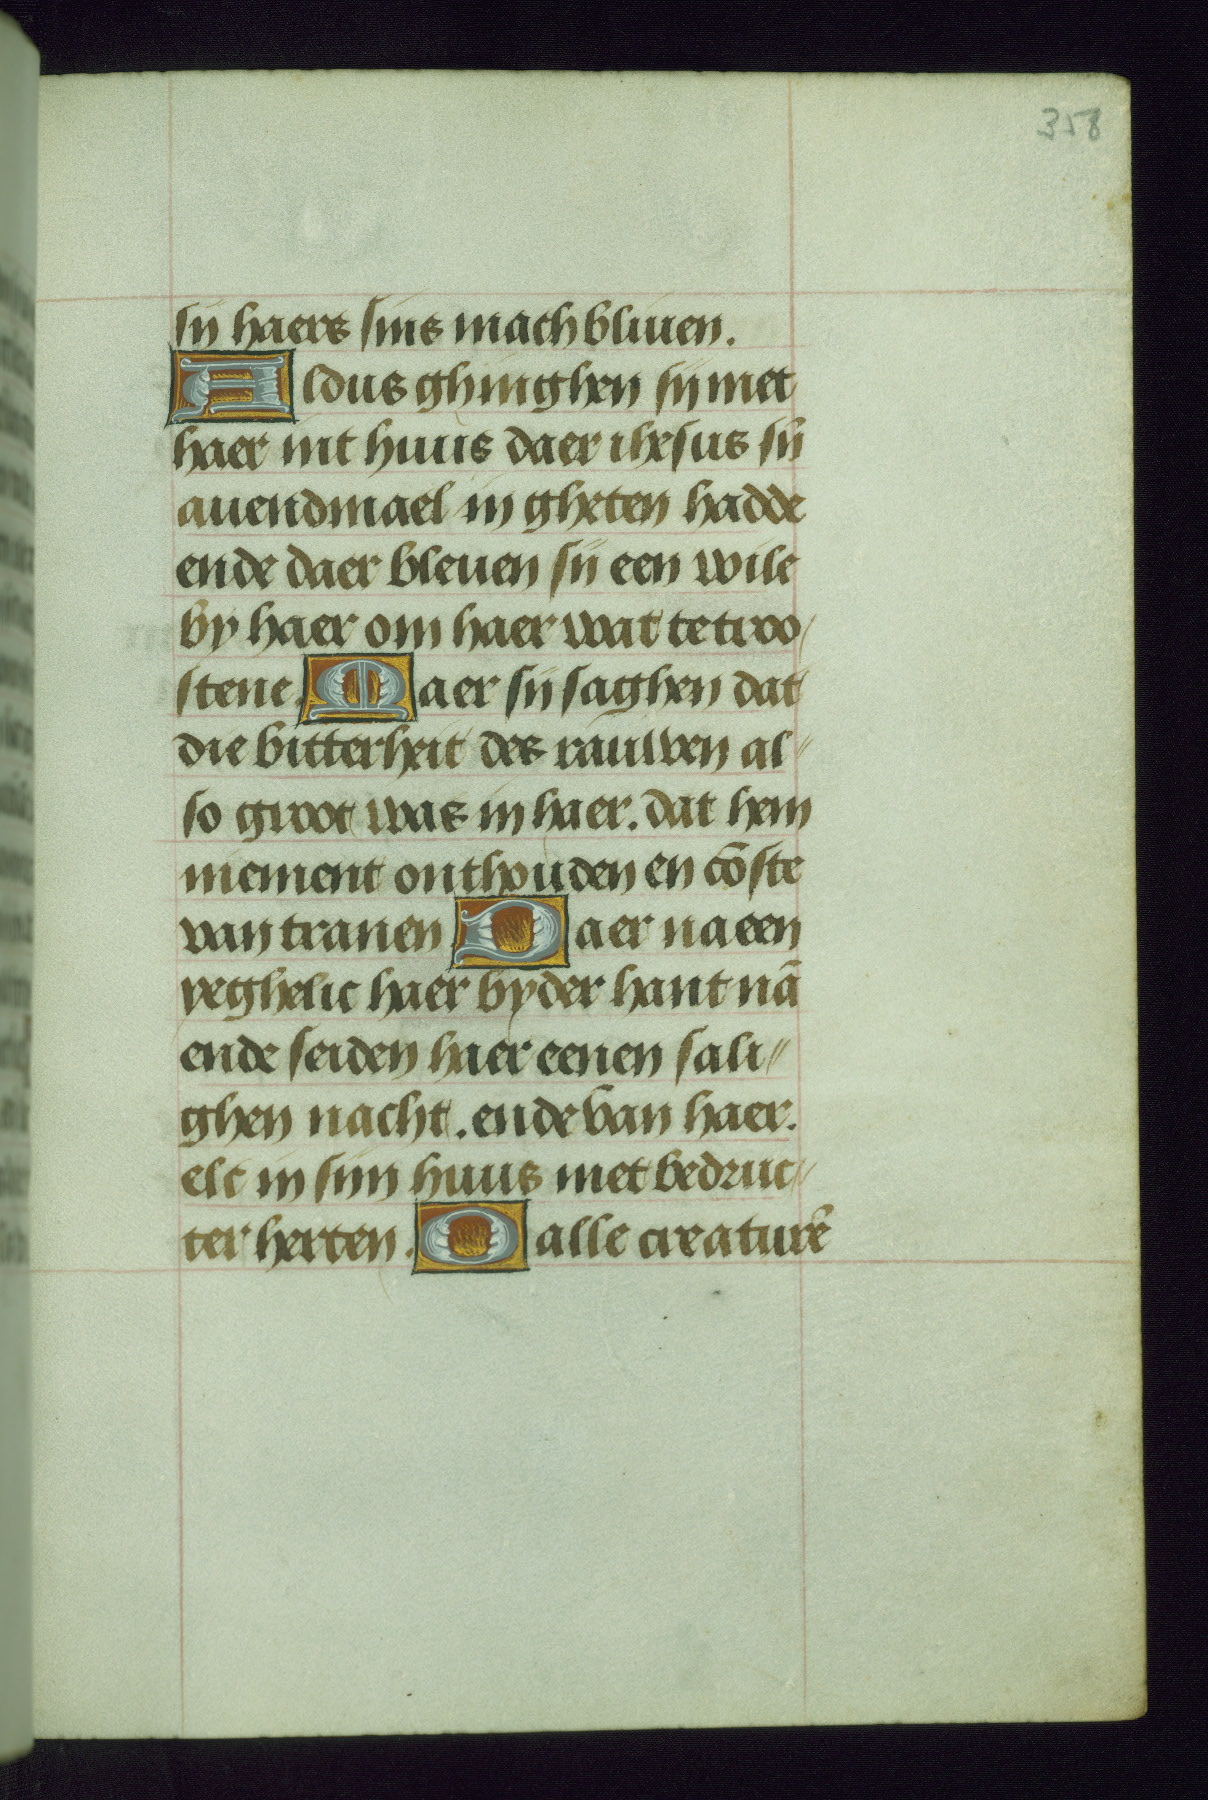 358
sij haers sins mach bliuen.
Aldus ghinghen sij met
haer int huus daer ihesus sijn
auendmael in gheten hadde
ende daer bleuen sij een wile
by haer om haer wat te troo/
stene. Maer sij saghen dat
die bitterheit des rauwen al〃
so groot was in haer. dat hem
niement onthouden en cōste
van tranen. Daer na een
yeghelic haer by der hant nā
ende seiden haer eenen sali〃
ghen nacht. ende van haer.
elc in sijn huus met bedruc〃
ter herten. O alle creaturē